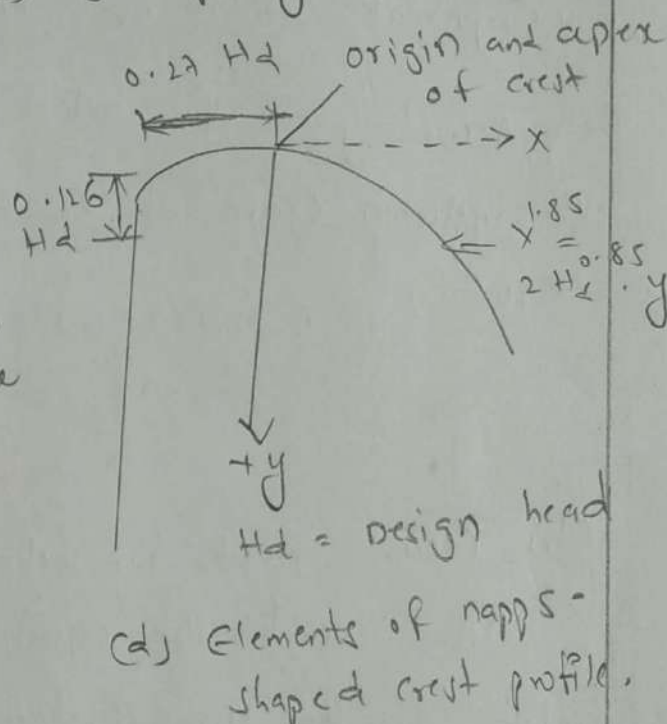 0.27 Hd
origin and apex
of crest
X
0.126
Hd
x^1.85 =
2 Hd^0.85 . y
+y
Hd = Design head
(d) Elements of napps-
shaped crest profile.